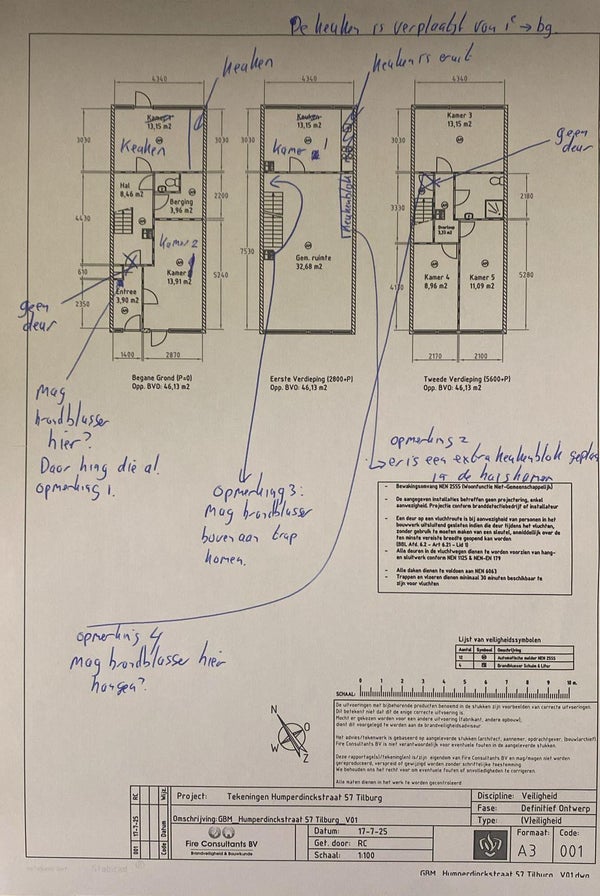 De keuken is verplaatst van 1e → bg.
keuken
keuken is eruit
4340
4340
4340
Kamer
13,15 m2
Keuken
Keuken
13,15 m2
Kamer 1
Kamer 3
13,15 m2
geen
deur
3030
3030
3030
3030
Hal
8,46 m2
Berging
3,96 m2
2200
keukenblok
2180
Overloop
4430
Kamer 2
Kamer
13,91 m2
7530
Gem. ruimte
32,68 m2
3330
610
5240
Kamer 4
8,96 m2
Kamer 5
11,09 m2
5280
Entree
3,90 m2
2350
geen
deur
1400
2870
2170
2100
Begane Grond (P=0)
Opp. BVO: 46,13 m2
Eerste Verdieping (2800+P)
Opp. BVO: 46,13 m2
Tweede Verdieping (5600+P)
Opp. BVO: 46,13 m2
Mag
brandblusser
hier?
Daar hing die al.
opmerking 1.
opmerking 2
er is een extra keukenblok geplaa
in de huiskamer
opmerking 3:
Mag brandblusser
bovenaan trap
komen.
- Bewakingsomvang NEN 2555 (Woonfunctie Niet-Gemeenschappelijk)
- De aangegeven installaties betreffen geen projectering, enkel
aanwezigheid. Projectie conform branddetectiebedrijf of installateur
- Een deur op een vluchtroute is bij aanwezigheid van personen in het
bouwwerk uitsluitend gesloten indien die deur tijdens het vluchten,
zonder gebruik te moeten maken van een sleutel, onmiddellijk over de
ten minste vereiste breedte geopend kan worden
(BBL Afd. 6.2 - Art 6.21 - Lid 1)
- Alle deuren in de vluchtwegen dienen te worden voorzien van hang-
en sluitwerk conform NEN 1125 & NEN-EN 179
- Alle daken dienen te voldoen aan NEN 6063
- Trappen en vloeren dienen minimaal 30 minuten beschikbaar te
zijn voor vluchten
opmerking 4
Mag brandblusser hier
hangen?
Lijst van veiligheidssymbolen
Aantal Symbool Omschrijving
12 Automatische melder NEN 2555
4 Brandblusser Schuim 6 Liter
SCHAAL:
0 1 2 3 4 5 6 7 8 9 10 m.
De uitvoeringen met bijbehorende producten benoemd in de stukken zijn voorbeelden van correcte uitvoeringen.
Dit betekent niet dat dit de enige correcte uitvoering is.
Mocht er gekozen worden voor een andere uitvoering (fabrikant, andere opbouw),
dient dit voorgelegd te worden aan de brandveiligheidsadviseur.
Het advies/tekenwerk is gebaseerd op aangeleverde stukken (architect, aannemer, opdrachtgever, (bouw)archief).
Fire Consultants BV is niet verantwoordelijk voor eventuele fouten in de aangeleverde stukken.
Deze rapportage(s)/tekening(en) is/zijn eigendom van Fire Consultants BV en mag/mogen niet worden
gereproduceerd, verspreid of gewijzigd worden zonder schriftelijke toestemming.
We behouden ons het recht voor om eventuele fouten of onvolledigheden te corrigeren.
Alle maten dienen in het werk te worden gecontroleerd.
N
O
W
Z
001 17-7-25 RC
Code Datum Wijz.
Project: Tekeningen Humperdinckstraat 57 Tilburg
Omschrijving: GBM_Humperdinckstraat 57 Tilburg_V01
Fire Consultants BV
Brandveiligheid & Bouwkunde
Datum: 17-7-25
Get. door: RC
Schaal: 1:100
Discipline: Veiligheid
Fase: Definitief Ontwerp
Type: (V)eiligheid
Formaat: A3
Code: 001
GBM_Humperdinckstraat 57 Tilburg V01.dwg